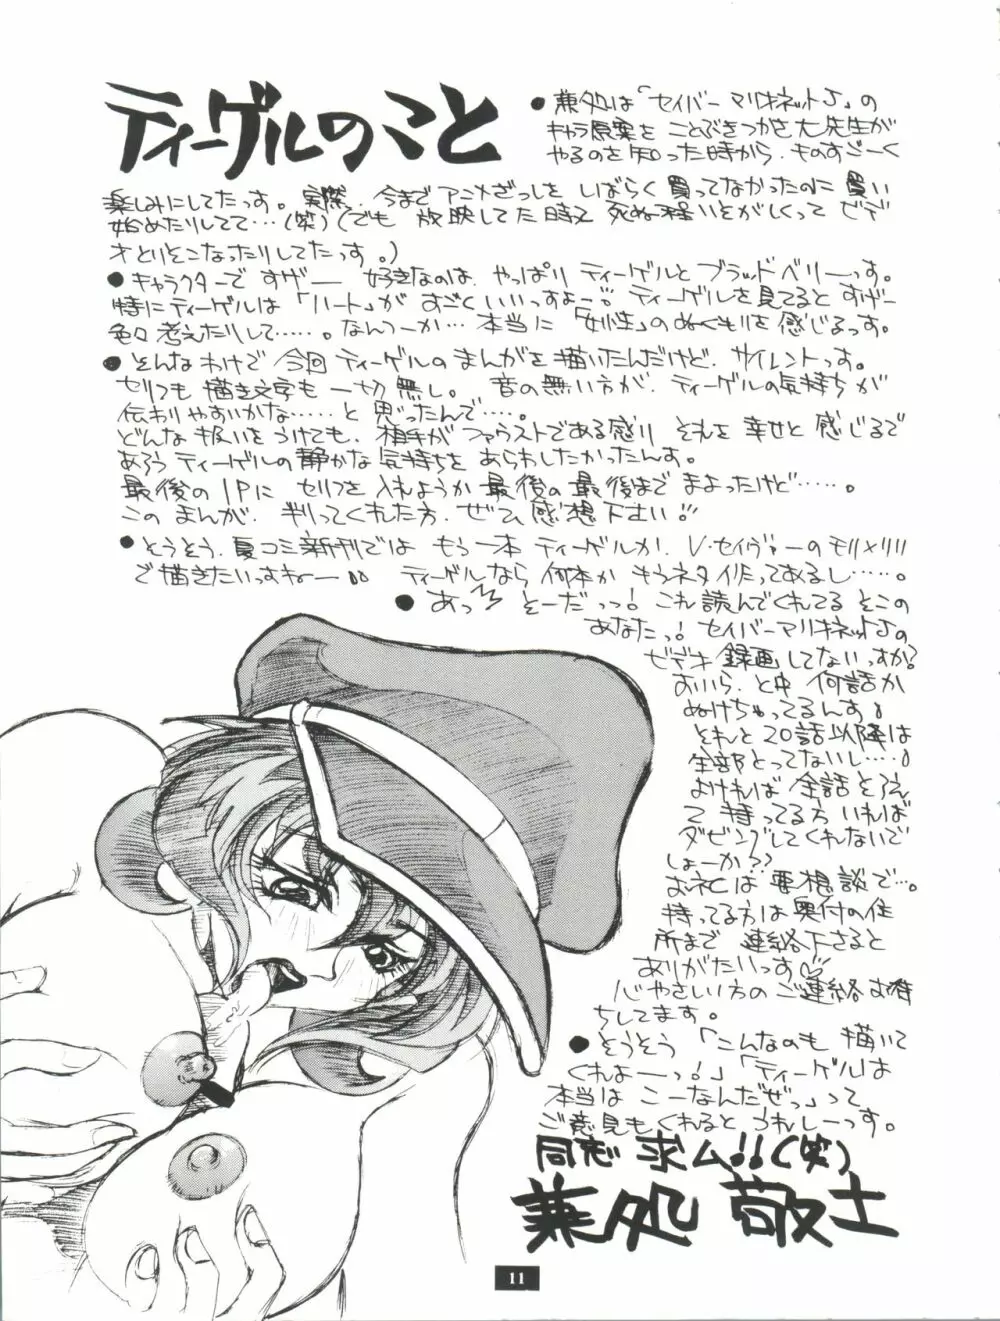 ティーゲルのこと
●兼処は「セイバーマリオネットJ」の
キャラ原案を ことぶきつかさ大先生が
やるのを知った時から、ものすごーく
楽しみにしてたっす。実際、今までアニメざっしを しばらく買ってなかったのに買い
始めたりしてて…(笑)(でも 放映してた時 死ぬ程いそがしくって ビデ
オとりそこなったりしてたっす。)
●キャラクターで すげー 好きなのは、やっぱり ティーゲルと ブラッドベリーっす。
特にティーゲルは「ハート」が すごくいいっすよー!! ティーゲルを見てると すげー
色々考えたりして……。なんつーか… 本当に「女性」のぬくもりを感じるっす。
●そんなわけで 今回 ティーゲルのまんがを描いたんだけど、サイレントっす。
セリフも 描き文字も 一切無し。音の無い方が、ティーゲルの気持ちが
伝わりやすいかな……と 思ったんで…。
どんな扱いをうけても、相手がファウストである限り それを幸せと感じるで
あろう ティーゲルの静かな気持ちを あらわしたかったんす。
最後の1Pに セリフを入れようか 最後の最後まで まよったけど……。
このまんが、判ってくれた方、ぜひ感想下さい!!
●そうそう、夏コミ新刊では もう一本 ティーゲルか、V・セイヴァーのモリ×リリ
で描きたいっすねー!! ティーゲルなら 何本か もうネタ作ってあるし……。
●あっ そーだっっ! これ読んでくれてる そこの
あなたっ! セイバーマリオネットJの
ビデオ 録画してないっすか?
おいら、と中 何話か
ぬけちゃってるんす!
それと 20話以降は
全部とってないし…!
よければ 全話そろえ
て 持ってる方 いれば
ダビングしてくれないで
しょーか??
お礼は要相談で…。
持ってる方は奥付の住
所まで 連絡下さると
ありがたいっす♡
心やさしい方の ご連絡お待
ちしてます。
●そうそう「こんなのも 描いて
くれよーっ!」「ティーゲルは
本当は こーなんだぜっ」って
ご意見もくれると うれしーっす。
同志 求ム!!(笑)
兼処 敬士
11